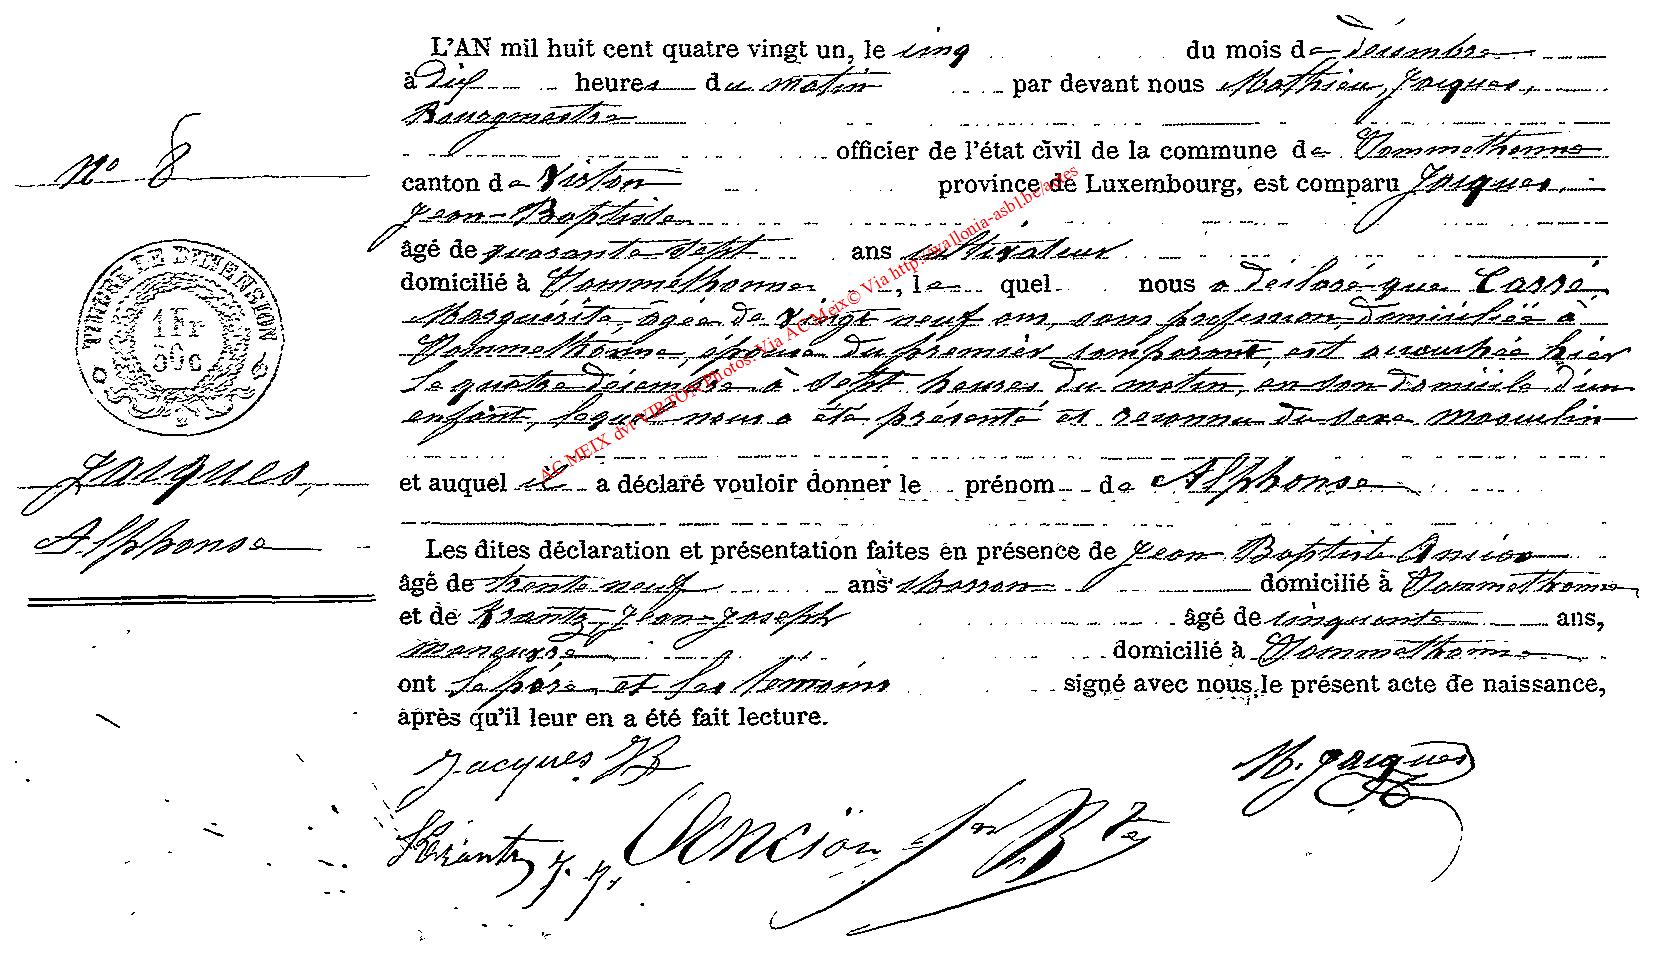 L'AN mil huit cent quatre vingt un, le cinq du mois de décembre
à dix heures du matin par devant nous Mathieu, Jacques,
Bourgmestre
officier de l'état civil de la commune de Sommethonne
canton de Virton province de Luxembourg, est comparu Jacques,
Jean-Baptiste
âgé de quarante sept ans cultivateur
domicilié à Sommethonne, lequel nous a déclaré que Carré,
Marguérite, âgée de vingt neuf ans, sans profession, domiciliée à
Sommethonne, épouse du premier comparant, est accouchée hier
le quatre décembre à sept heures du matin, en son domicile d'un
enfant, lequel nous a été présenté et reconnu du sexe masculin
et auquel il a déclaré vouloir donner le prénom de Alphonse
Les dites déclaration et présentation faites en présence de Jean Baptiste Ancion
âgé de trente neuf ans charron domicilié à Sommethonne
et de Krantz, Jean-Joseph âgé de cinquante ans,
manœuvre domicilié à Sommethonne
ont le père et les témoins signé avec nous le présent acte de naissance,
après qu'il leur en a été fait lecture.
Jacques JB
M. Jacques
Krantz J. J. Ancion Jean Bte
N° 8
TIMBRE DE DIMENSION
1 Fr
30 C
Jacques,
Alphonse
AC MEIX dvt VIRTON Photos: Via AC Meix© Via http://wallonia-asbl.be/actes